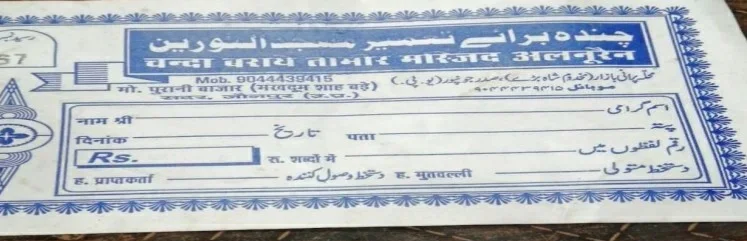 رسید نمبر
57
چندہ برائے تعمیر مسجد النورین
चन्दा बराये तामीर मस्जिद अलनूरैन
Mob. 9044439415
मो. पुरानी बाजार (मखदूम शाह बड़े)
सदर, जौनपुर (उ.प्र.)
محلہ پرانی بازار (مخدوم شاہ بڑے) صدر جونپور (یو.پی.)
موبائل ۹۰۴۴۴۳۹۴۱۵
नाम श्री اسم گرامی
दिनांक تاریخ पता پتہ
Rs. रू. शब्दों में رقم لفظوں میں
ह. प्राप्तकर्ता دستخط وصول کنندہ ह. मुतवल्ली دستخط متولی